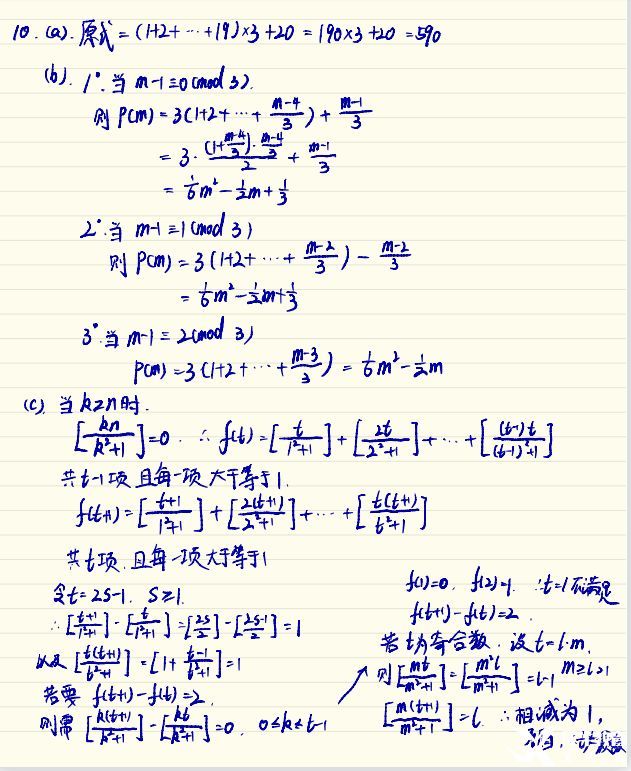 10. (a). 原式 = (1+2+ ⋯ +19)×3+20 = 190×3+20 = 590
(b). 1°. 当 m-1≡0(mod 3).
则 P(m) = 3(1+2+ ⋯ + (m-4)/3) + (m-1)/3
= 3· (1+(m-4)/3)·(m-4)/3 / 2 + (m-1)/3
= 1/6 m² - 1/2 m + 1/3
2°. 当 m-1≡1(mod 3)
则 P(m) = 3(1+2+ ⋯ + (m-2)/3) - (m-2)/3
= 1/6 m² - 1/2 m + 1/3
3° 当 m-1≡2(mod 3)
P(m) = 3(1+2+ ⋯ + (m-3)/3) = 1/6 m² - 1/2 m
(c). 当 k≥n时.
[kn/(k²+1)] = 0. ∴ f(t) = [t/(1²+1)] + [2t/(2²+1)] + ⋯ + [(t-1)t/((t-1)²+1)]
共t-1项 且每一项大于等于1.
f(t+1) = [(t+1)/(1²+1)] + [2(t+1)/(2²+1)] + ⋯ + [t(t+1)/(t²+1)]
共t项, 且每一项大于等于1
令t=2s-1, s≥1.
∴ [(t+1)/(1²+1)] - [t/(1²+1)] = [2s/2] - [(2s-1)/2] = 1
以及 [t(t+1)/(t²+1)] = [1 + (t-1)/(t²+1)] = 1
若要 f(t+1)-f(t)=2,
则需 [k(t+1)/(k²+1)] - [kt/(k²+1)] = 0, 0≤k≤t-1
f(1)=0, f(2)=1, ∴t=1不满足
f(t+1)-f(t)=2.
若t为奇合数, 设t=l·m,
则 [mt/(m²+1)] = [m²l/(m²+1)] = l-1 m≥l>1
[m(t+1)/(m²+1)] = l. ∴相减为1,